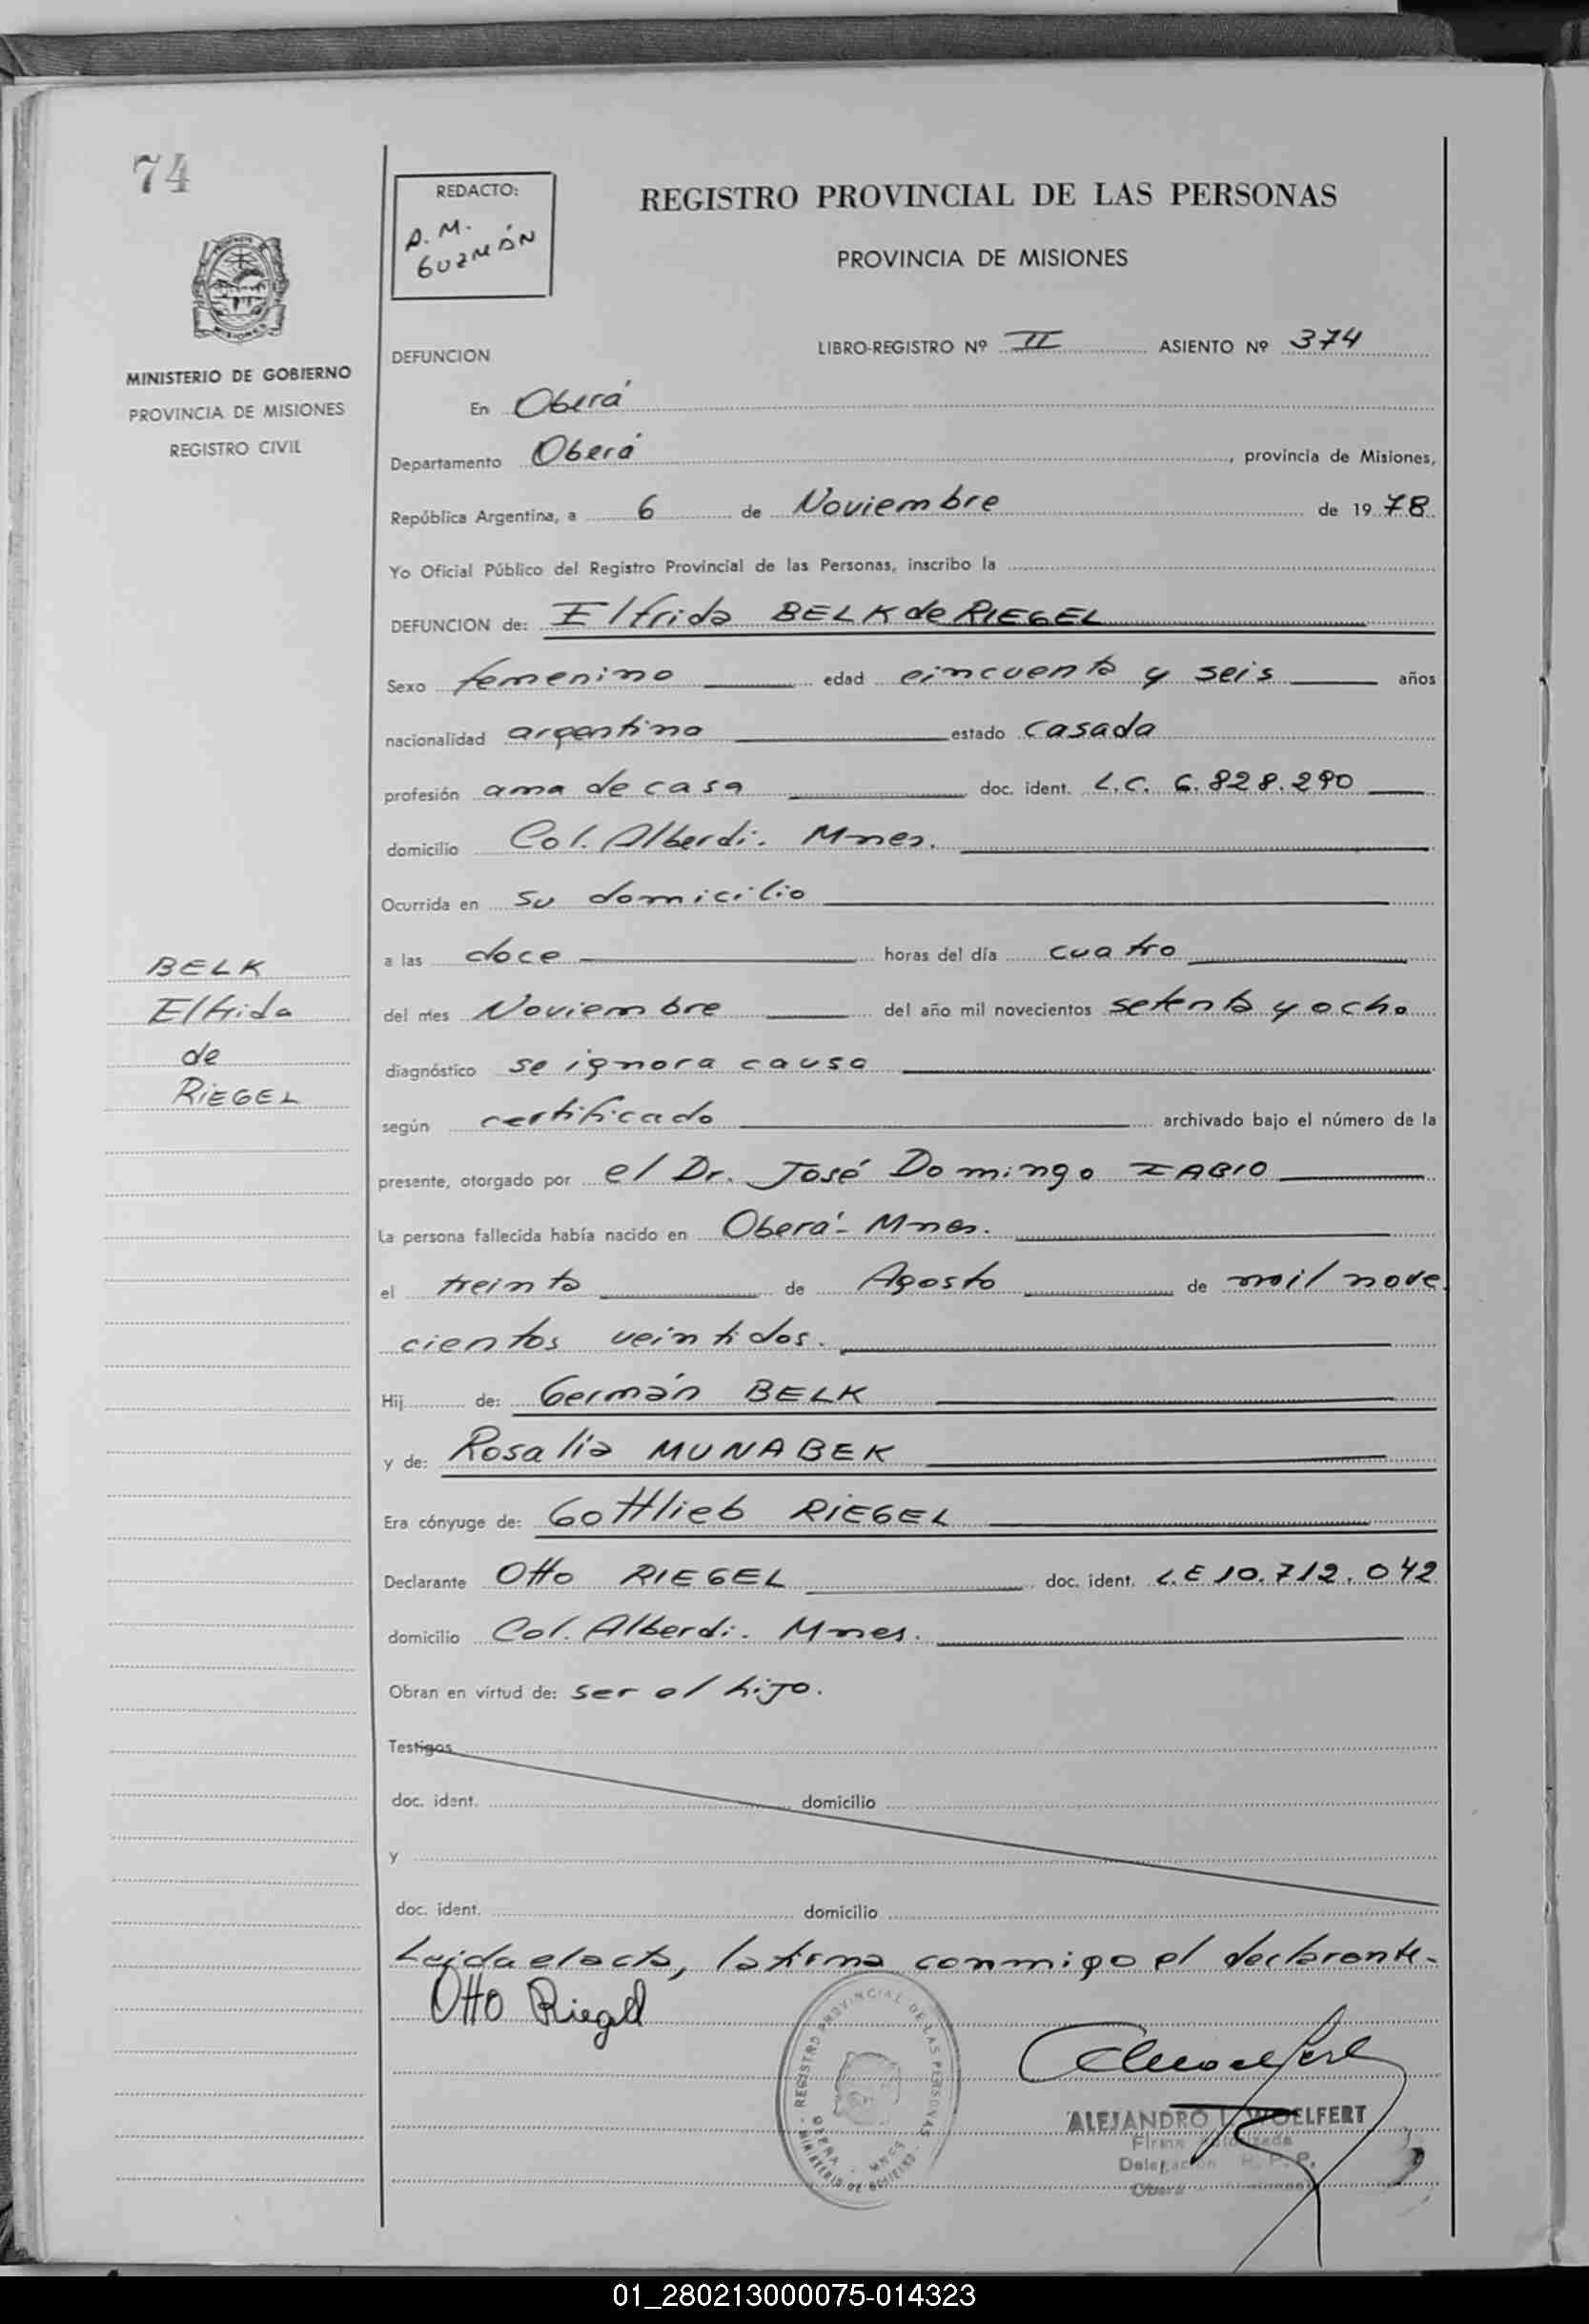 74
REDACTO:
A. M.
GUZMÁN
REGISTRO PROVINCIAL DE LAS PERSONAS
PROVINCIA DE MISIONES
MINISTERIO DE GOBIERNO
PROVINCIA DE MISIONES
REGISTRO CIVIL
DEFUNCION
LIBRO-REGISTRO Nº II ASIENTO Nº 374
En Oberá
Departamento Oberá, provincia de Misiones,
República Argentina, a 6 de Noviembre de 1978
Yo Oficial Público del Registro Provincial de las Personas, inscribo la
DEFUNCION de: Elfrida BELK de RIEGEL
Sexo femenino edad cincuenta y seis años
nacionalidad argentina estado casada
profesión ama de casa doc. ident. L.C. 6.828.290
domicilio Col. Alberdi. Mnes.
Ocurrida en su domicilio
a las doce horas del día cuatro
del mes Noviembre del año mil novecientos setenta y ocho
diagnóstico se ignora causa
según certificado archivado bajo el número de la
presente, otorgado por el Dr. José Domingo IABIO
La persona fallecida había nacido en Oberá - Mnes.
el treinta de Agosto de mil nove
cientos veintidos.
Hij de: Germán BELK
y de: Rosalia MUNABEK
Era cónyuge de: Gottlieb RIEGEL
Declarante Otto RIEGEL doc. ident. L.E 10.712.042
domicilio Col. Alberdi. Mnes.
Obran en virtud de: ser el hijo.
Testigos
doc. ident. domicilio
y
doc. ident. domicilio
Leida el acta, la firma conmigo el declarante-
Otto Riegel
BELK
Elfrida
de
RIEGEL
REGISTRO PROVINCIAL DE LAS PERSONAS
OBERA - MNES
MINISTERIO DE GOBIERNO
ALEJANDRO L. WOELFERT
Firma Autorizada
Delegación R. P. P.
Oberá
01_280213000075-014323